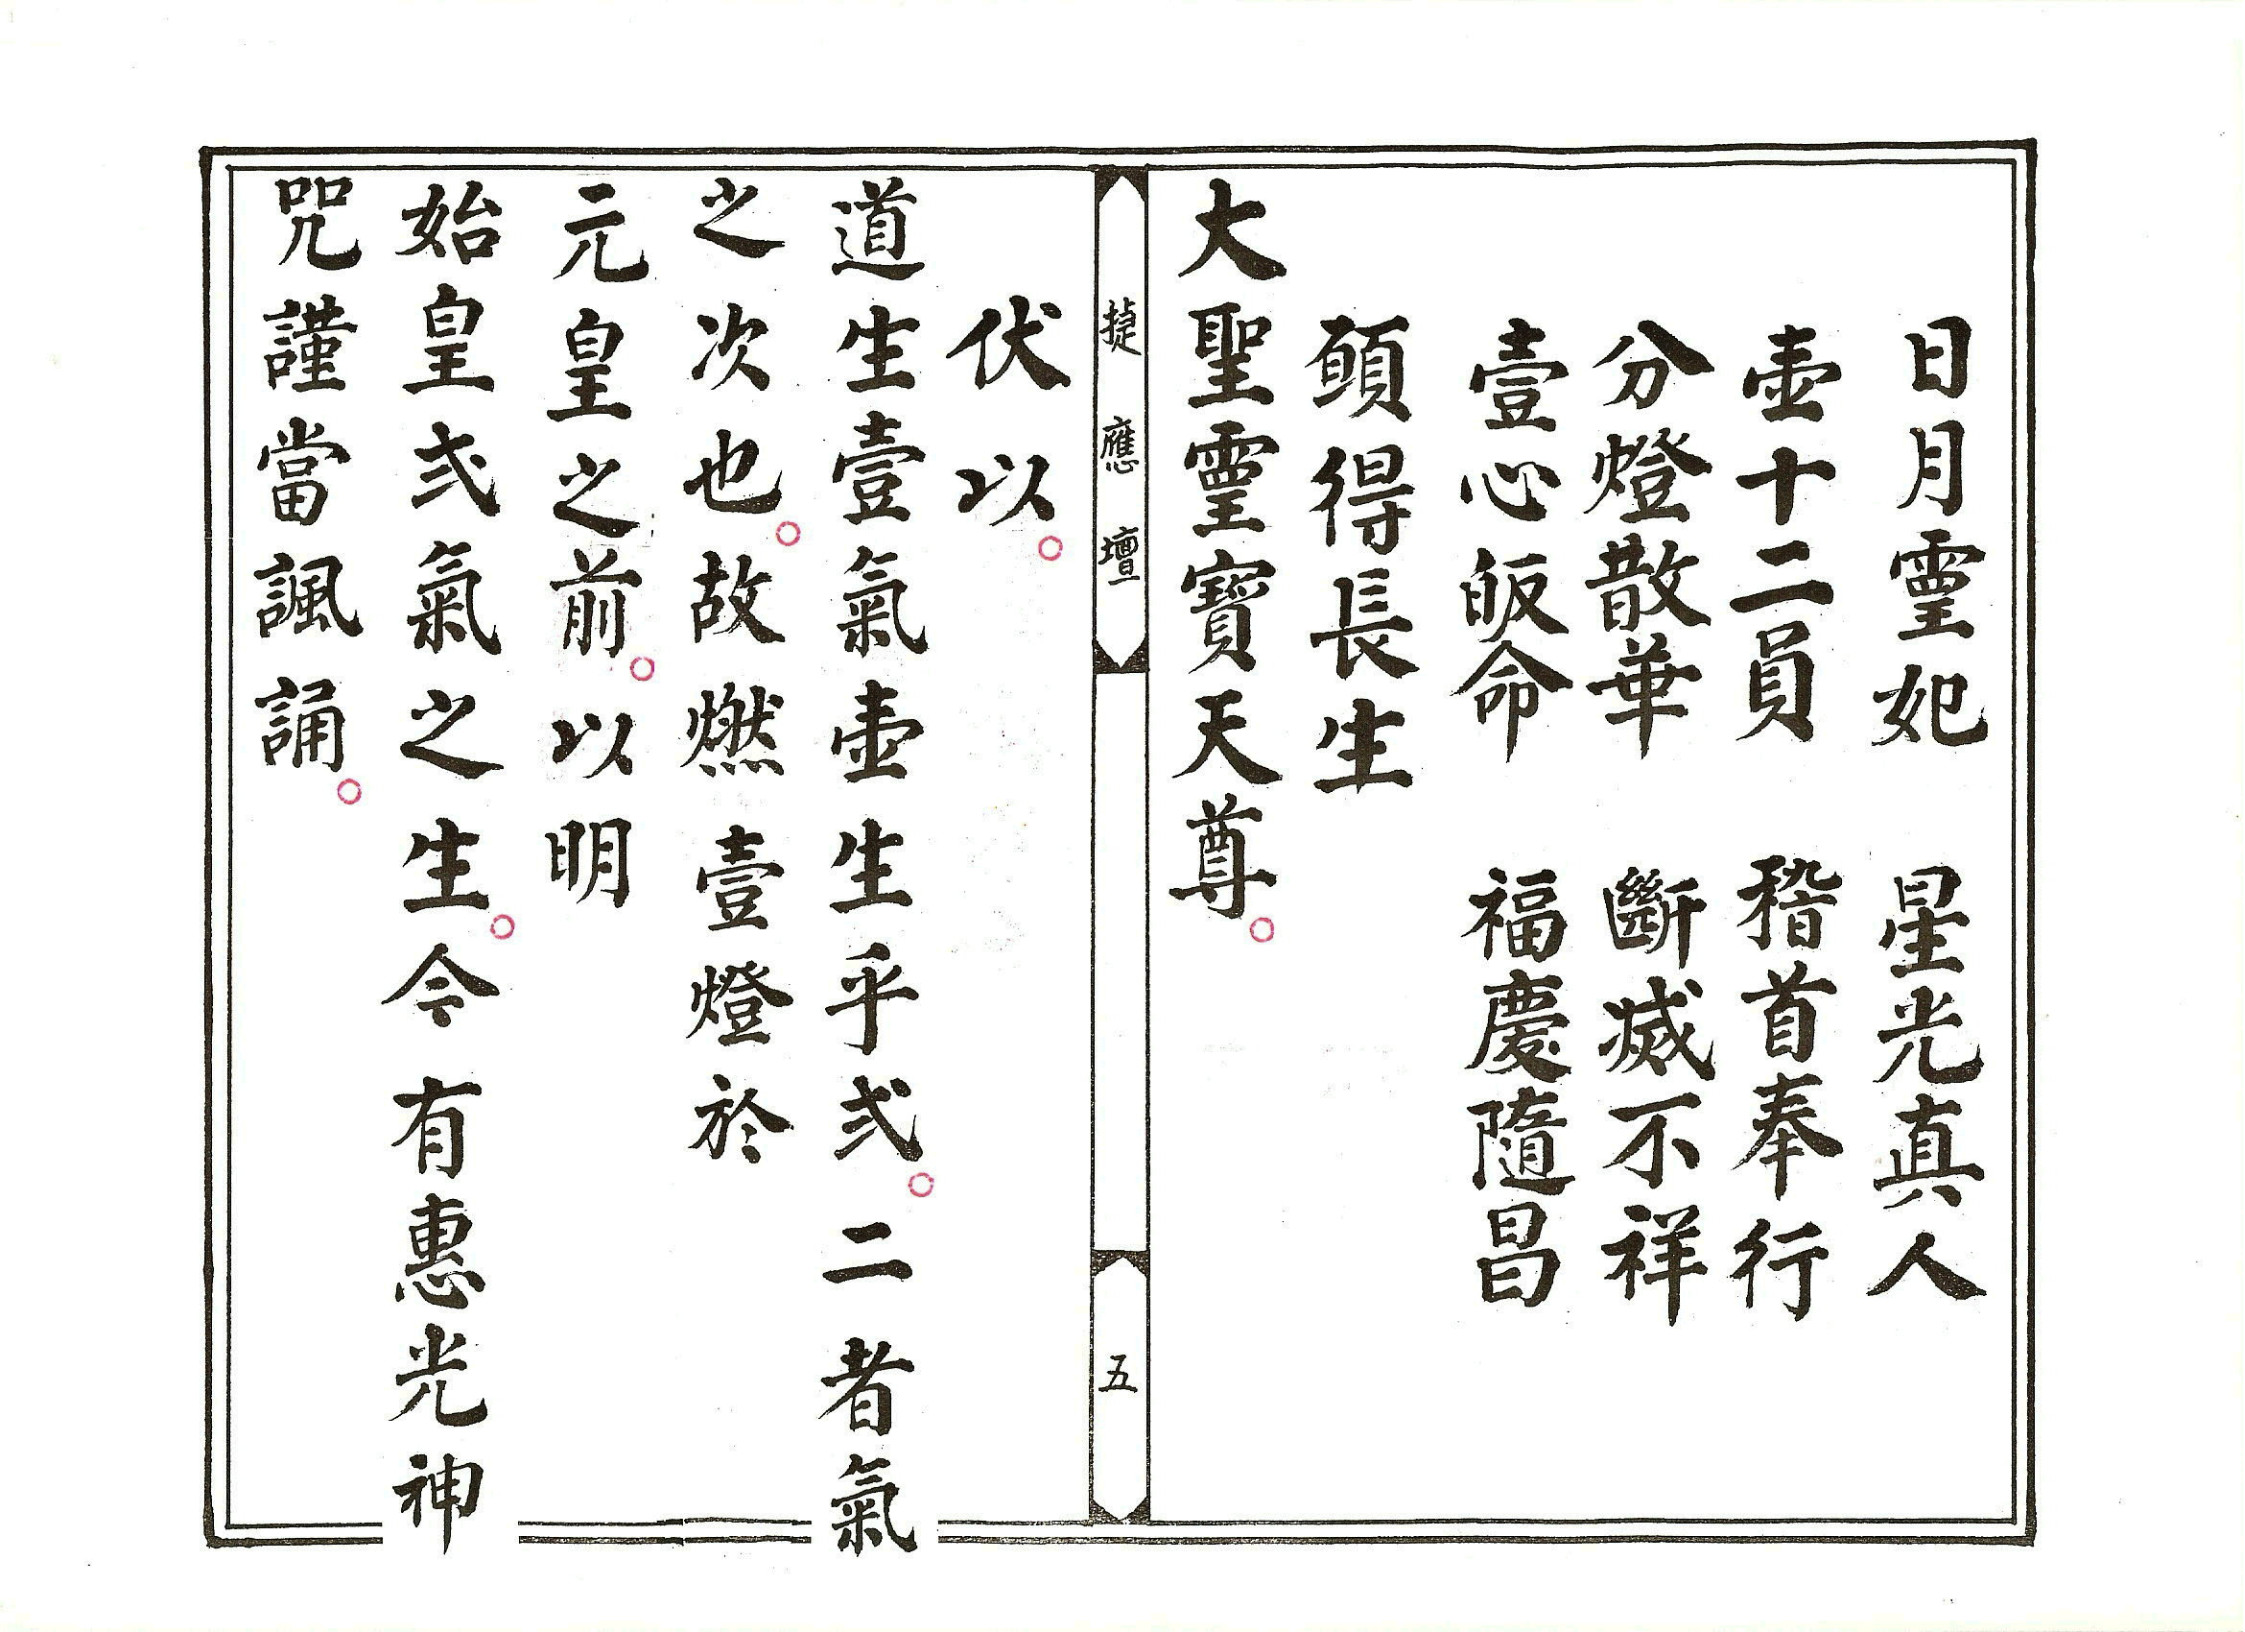 日月靈妃　星光真人
壺十二員　稽首奉行
分燈散華　斷滅不祥
壹心皈命　福慶隨昌
願得長生
大聖靈寶天尊。
捷應壇　五
伏以。
道生壹氣壺生乎弍。二者氣
之次也。故燃壹燈於
元皇之前。以明
始皇弍氣之生。今有惠光神
咒謹當諷誦。